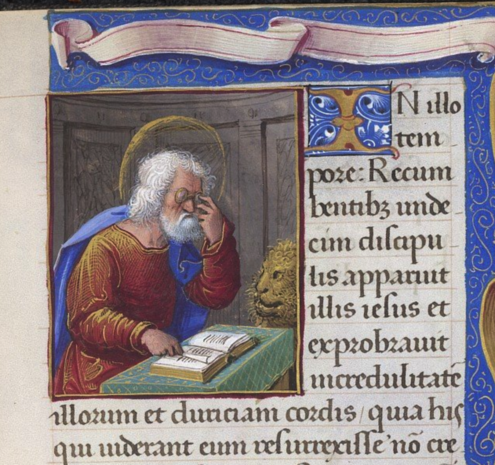 IN illo
tem
pore: Recum
bentibꝫ unde
cim discipu
lis apparuit
illis iesus et
exprobrauit
incredulitatē
illorum et duriciam cordis / quia hijs
qui uiderant eum resurrexisse nō cre